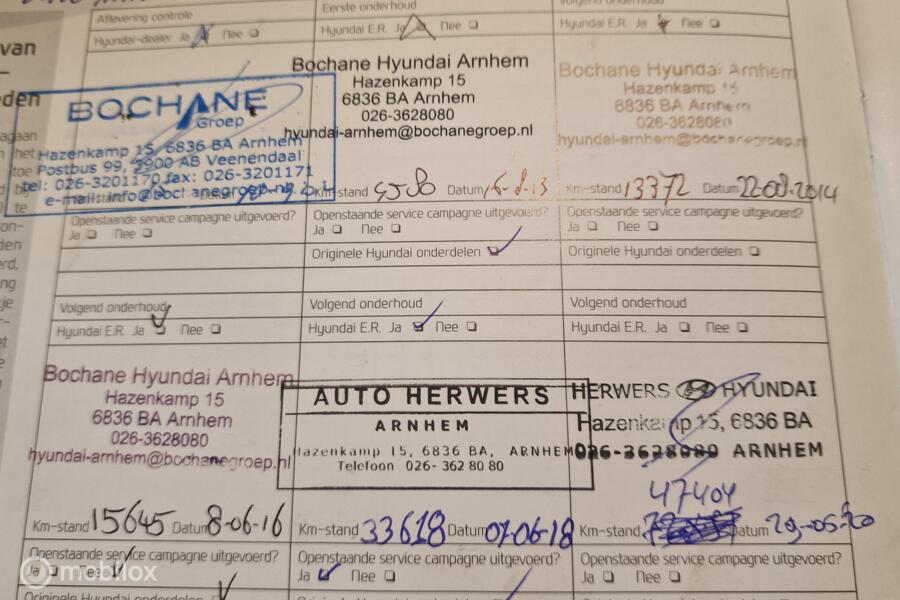 Aflevering controle
Hyundai-dealer Ja Nee
BOCHANE
Groep
Hazenkamp 15, 6836 BA Arnhem
Postbus 99, 3900 AB Veenendaal
tel: 026-3201170 fax: 026-3201171
Openstaande service campagne uitgevoerd?
Ja Nee
Eerste onderhoud
Hyundai E.R. Ja Nee
Bochane Hyundai Arnhem
Hazenkamp 15
6836 BA Arnhem
026-3628080
hyundai-arnhem@bochanegroep.nl
Km-stand Datum
Openstaande service campagne uitgevoerd?
Ja Nee
Originele Hyundai onderdelen
Volgend onderhoud
Hyundai E.R. Ja Nee
Bochane Hyundai Arnhem
Hazenkamp 15
6836 BA Arnhem
026-3628080
hyundai-arnhem@bochanegroep.nl
Km-stand 13372 Datum 22-08-2014
Openstaande service campagne uitgevoerd?
Ja Nee
Originele Hyundai onderdelen
Volgend onderhoud
Hyundai E.R. Ja Nee
Bochane Hyundai Arnhem
Hazenkamp 15
6836 BA Arnhem
026-3628080
hyundai-arnhem@bochanegroep.nl
Km-stand 15645 Datum 8-06-16
Openstaande service campagne uitgevoerd?
Ja Nee
Originele Hyundai onderdelen
Volgend onderhoud
Hyundai E.R. Ja Nee
AUTO HERWERS
ARNHEM
Hazenkamp 15, 6836 BA, ARNHEM
Telefoon 026- 362 80 80
Km-stand 33618 Datum 07-06-18
Openstaande service campagne uitgevoerd?
Ja Nee
Volgend onderhoud
Hyundai E.R. Ja Nee
HERWERS HYUNDAI
Hazenkamp 15, 6836 BA
026-3628080 ARNHEM
47404
Km-stand Datum 29-05-20
Openstaande service campagne uitgevoerd?
Ja Nee
van
eden
mobilox